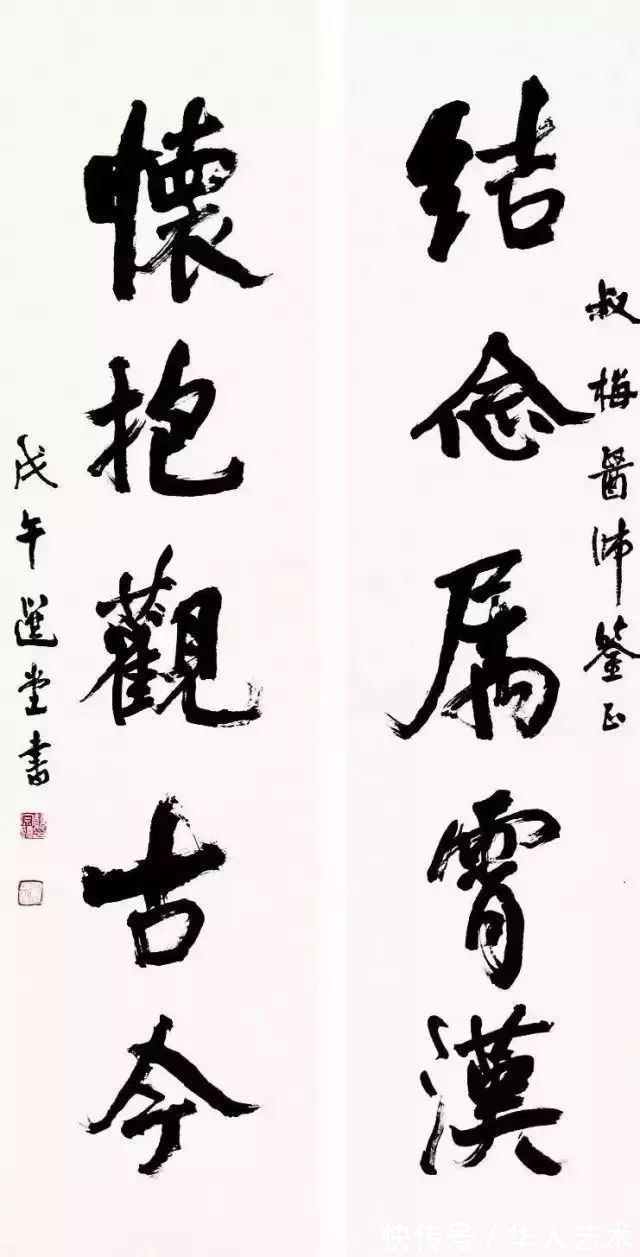 叔梅醫師鑒正
结念属霄漢
懷抱觀古今
戊午選堂書
快传号／华人艺术